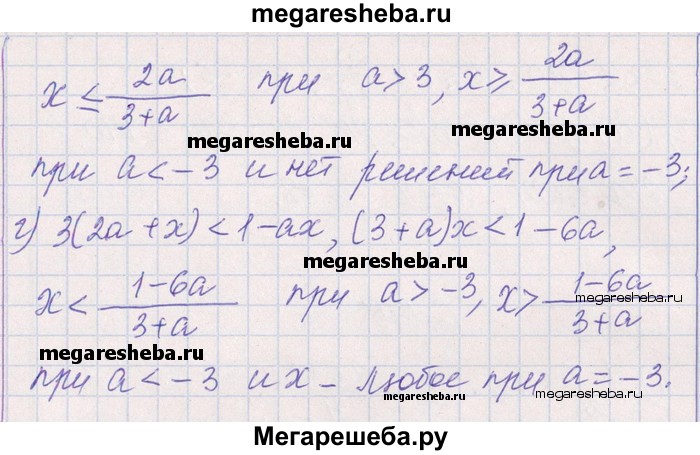 megaresheba.ru
x ≤ 2a/(3+a) при a > 3, x ≥ 2a/(3+a)
megaresheba.ru megaresheba.ru
при a < -3 и нет решений при a = -3;
г) 3(2a+x) < 1-ax, (3+a)x < 1-6a,
megaresheba.ru
x < (1-6a)/(3+a) при a > -3, x > (1-6a)/(3+a)
megaresheba.ru megaresheba.ru
при a < -3 и x - любое при a = -3.
megaresheba.ru megaresheba.ru
Мегарешеба.ру